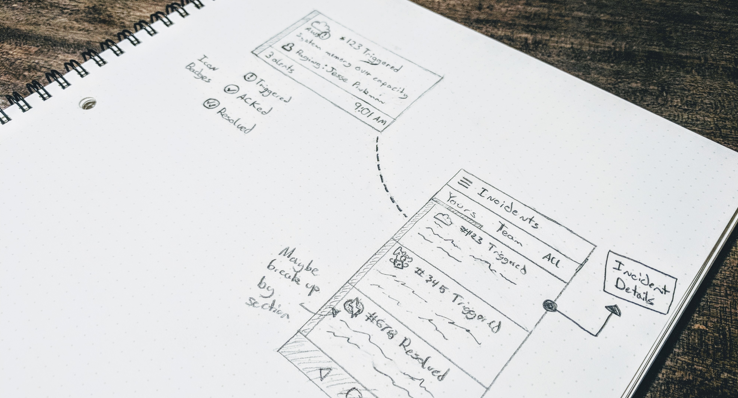 #123 Triggered
System memory over capacity
Paging: Jesse Pinkman
3 alerts
9:01 AM
Icon
Badges
Triggered
ACKed
Resolved
Incidents
Yours Team All
#123 Triggered
#345 Triggered
#678 Resolved
Maybe
break up
by
section
Incident
Details